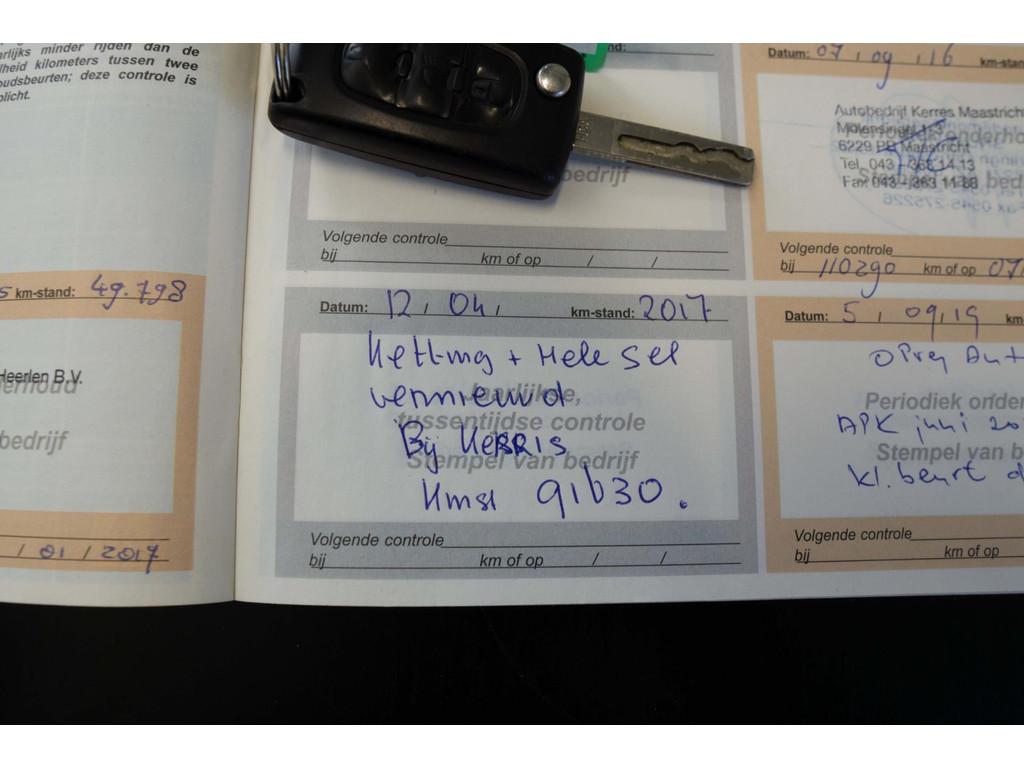 arlijks minder rijden dan de
lheid kilometers tussen twee
oudsbeurten; deze controle is
plicht.
s km-stand: 49.798
Heerlen B.V.
erhoud
bedrijf
/ 01 / 2017
nd:
bedrijf
Volgende controle
bij km of op / /
Datum: 12 / 04 / km-stand: 2017
Ketting + Hele Set
vernieuwd
Jaarlijkse,
tussentijdse controle
Bij Kerris
Stempel van bedrijf
Kmst 91630.
Volgende controle
bij km of op / /
Datum: 07 / 09 / 16 km-stand
Autobedrijf Kerres Maastricht
Molensingel 13
Periodiek onderho
6229 PB Maastricht
Tel. 043 - 363 14 13
Fax 043 - 363 11 88
Volgende controle
bij 110290 km of op 07/
Datum: 5 / 09/19 km
OPrey Aut
Periodiek onder
APK juni 20
Stempel van b
kl. beurt d
Volgende controle
bij km of op